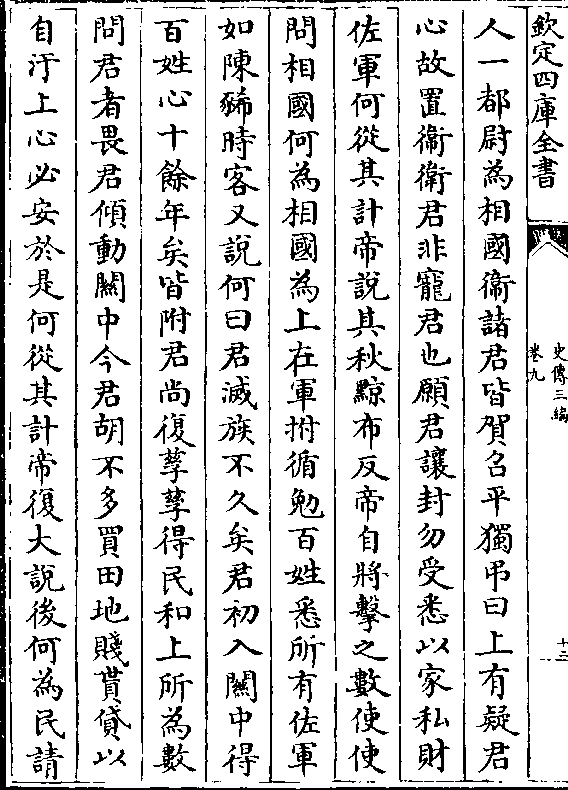 欽定四庫全書
史傳三編
卷九
十三
人一都尉為相國衞諸君皆賀召平獨弔曰上有疑君
心故置衞衞君非寵君也願君讓封勿受悉以家私財
佐軍何從其計帝說其秋黥布反帝自將擊之數使使
問相國何為相國為上在軍拊循勉百姓悉所有佐軍
如陳豨時客又說何曰君滅族不久矣君初入關中得
百姓心十餘年矣皆附君尚復孳孳得民和上所為數
問君者畏君傾動關中今君胡不多買田地賤貰貸以
自汙上心必安於是何從其計帝復大說後何為民請